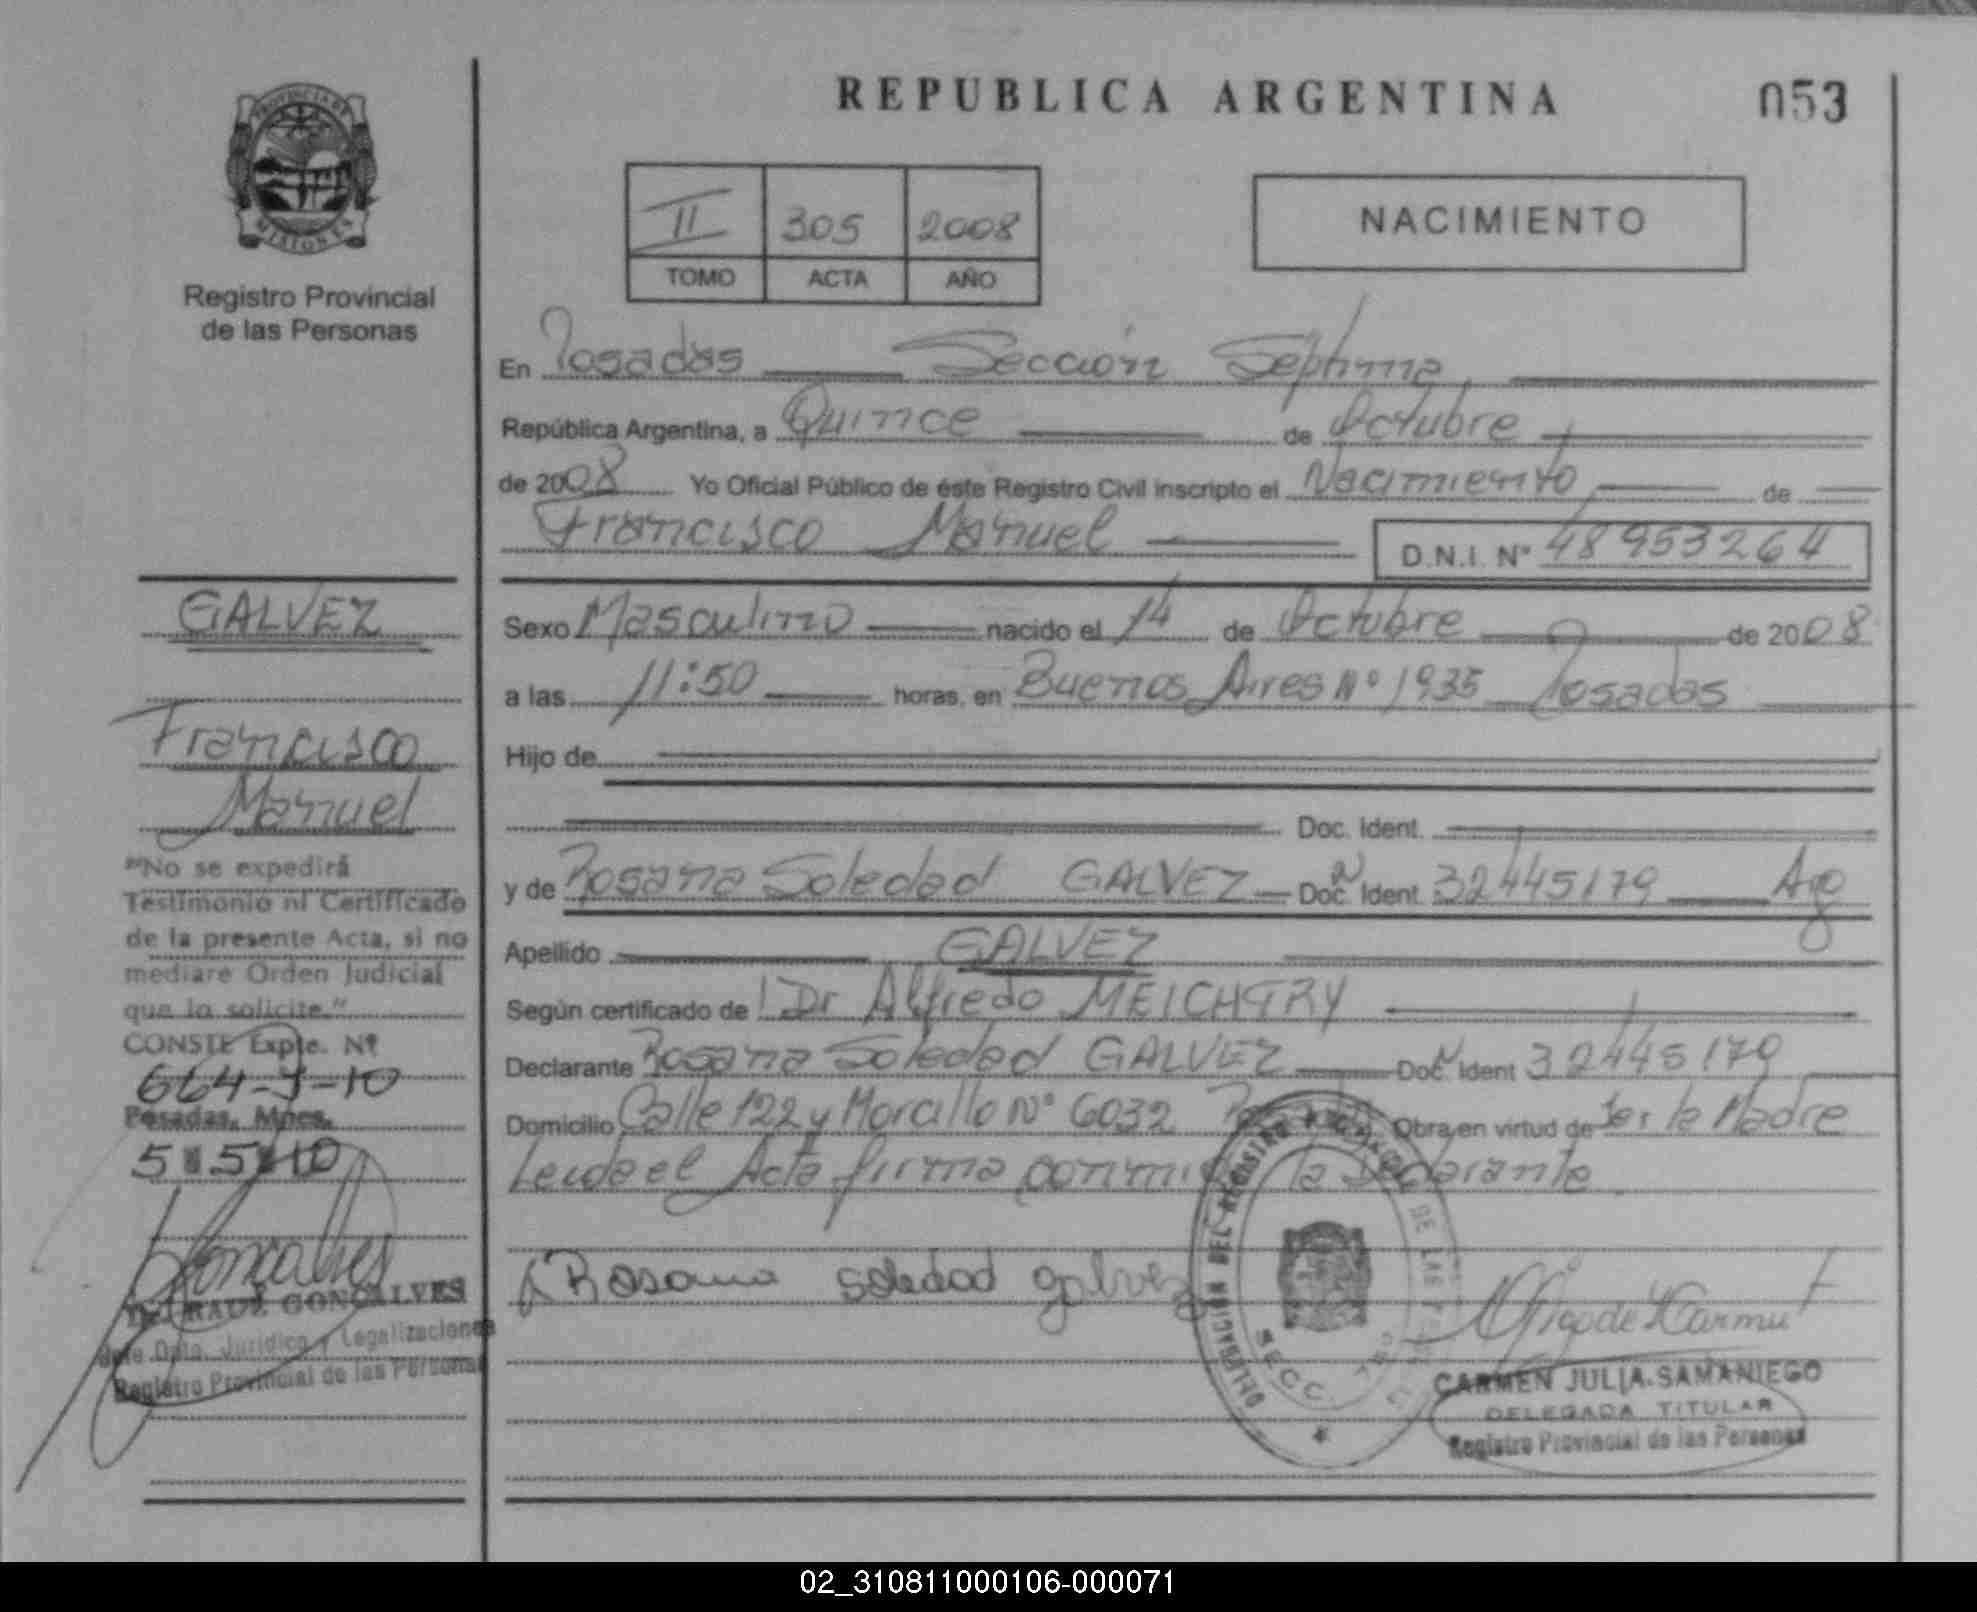 REPUBLICA ARGENTINA
053
PROVINCIA DE
MISIONES
Registro Provincial
de las Personas
II 305 2008
TOMO ACTA AÑO
NACIMIENTO
En Posadas Sección Séptima,
República Argentina, a Quince de Octubre
de 2008 Yo Oficial Público de éste Registro Civil inscripto el Nacimiento de
Francisco Manuel D.N.I. Nº 48953264
Sexo Masculino nacido el 14 de Octubre de 2008
a las 11:50 horas, en Buenos Aires Nº 1935 Posadas
Hijo de
Doc. Ident.
y de Rosana Soledad GALVEZ Doc. Ident. 32445179 Arg
Apellido GALVEZ
Según certificado de Dr Alfredo MEICHTRY
Declarante Rosana Soledad GALVEZ Doc. Ident 32445179
Domicilio Calle 122 y Morcillo Nº 6032 Obra en virtud de Ser la Madre
Leida el Acta firma conmigo la Declarante
Rosana Soledad galvez
DELEGACION DEL REGISTRO DE LAS
SECC. 7
CARMEN JULIA SAMANIEGO
DELEGADA TITULAR
Registro Provincial de las Personas
GALVEZ
Francisco
Manuel
"No se expedirá
Testimonio ni Certificado
de la presente Acta, si no
mediare Orden Judicial
que lo solicite."
CONSTE Expte. Nº
664-J-10
Posadas, Mnes.
5 5 10
RAUL GONCALVES
Jefe Dpto. Jurídico y Legalizaciones
Registro Provincial de las Personas
02_310811000106-000071